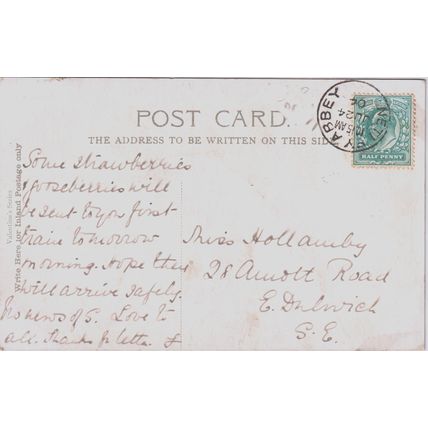 POST CARD.
THE ADDRESS TO BE WRITTEN ON THIS SIDE
HALF PENNY
Valentine's Series
Write Here for Inland Postage only
Some strawberries
gooseberries will
be sent to you first
train tomorrow
morning. Hope they
will arrive safely.
No news of S. Love to
all. Thanks for letter.
Miss Hollamby
28 Arnott Road
E. Dulwich
S.E.
ABBEY
JU 24
04